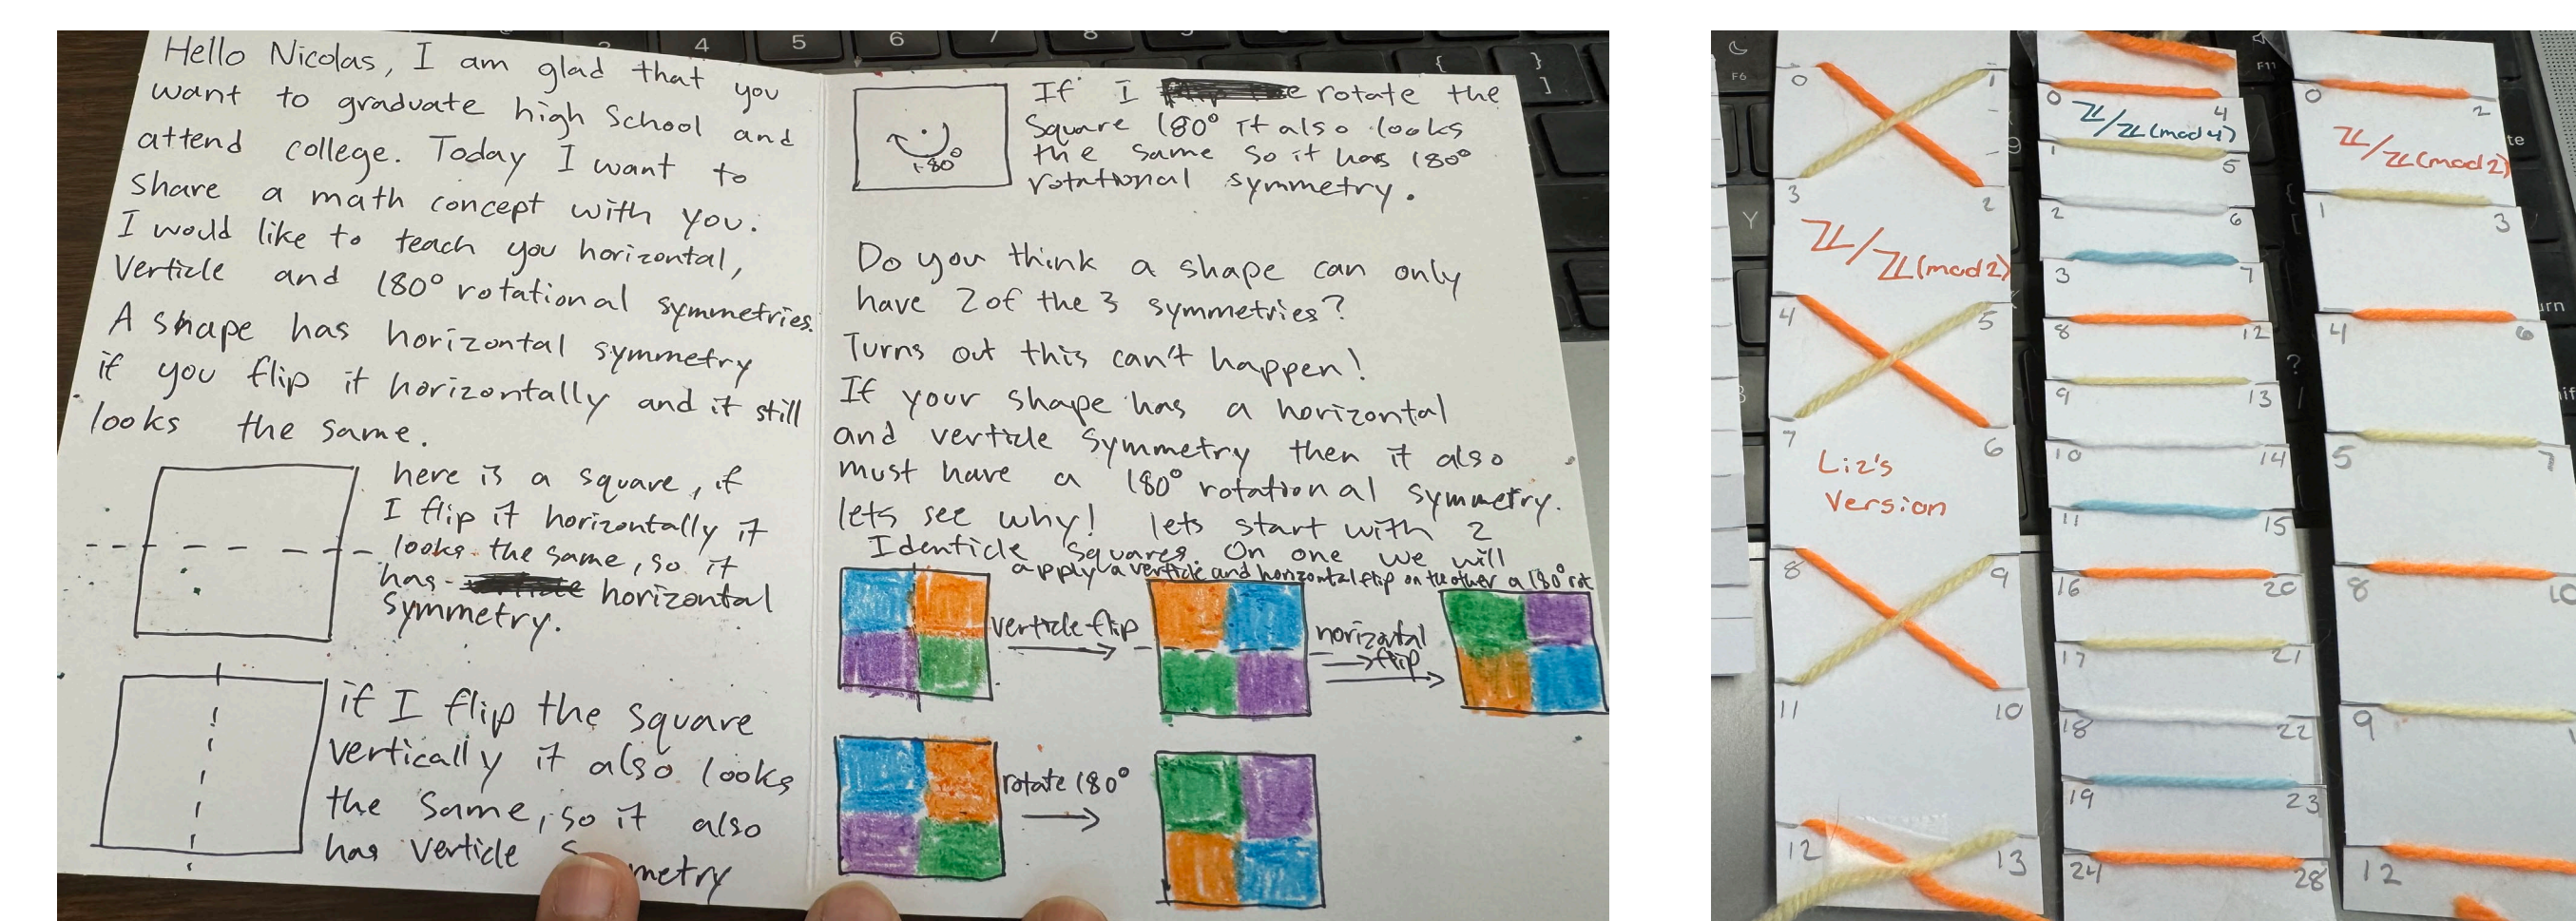 Hello Nicolas, I am glad that you
want to graduate high School and
attend college. Today I want to
share a math concept with you.
I would like to teach you horizontal,
Verticle and 180° rotational symmetries.
A shape has horizontal symmetry
if you flip it horizontally and it still
looks the same.
here is a square, if
I flip it horizontally it
looks the same, so it
has horizontal
symmetry.
if I flip the square
vertically it also looks
the same, so it also
has verticle
metry
180°
If I rotate the
square 180° it also looks
the same so it has 180°
rotational symmetry.
Do you think a shape can only
have 2 of the 3 symmetries?
Turns out this can't happen!
If your shape has a horizontal
and verticle symmetry then it also
must have a 180° rotational symmetry.
lets see why! lets start with 2
Identicle squares. On one we will
apply a verticle and horizontal flip on the other a 180° rot
verticle flip
horizontal
flip
rotate 180°
4 5 6
0 1
3 2
Z/Z(mod2)
4 5
7 6
Liz's
Version
8 9
11 10
12 13
0 4
Z/Z(mod4)
1 5
2 6
3 7
8 12
9 13
10 14
11 15
16 20
17 21
18 22
19 23
24 28
0 2
Z/Z(mod2)
1 3
4 6
5 7
8 10
9
12
F6
F11
Y